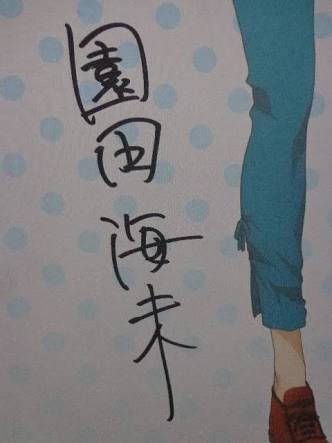 園田海未